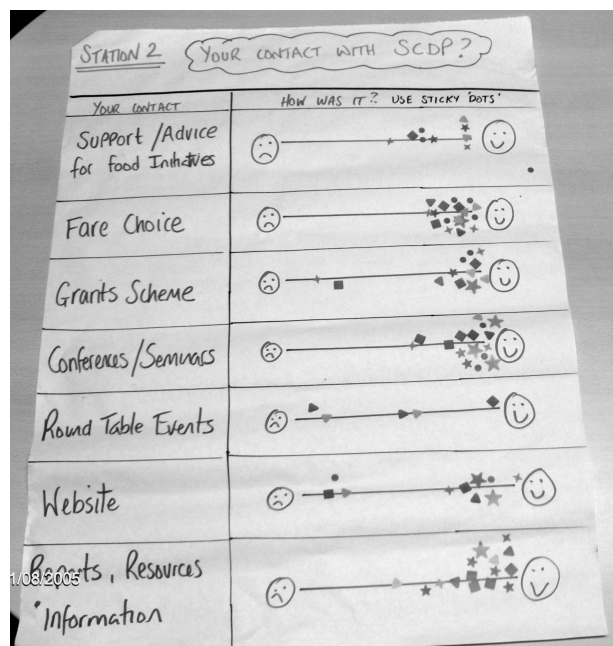 STATION 2 YOUR CONTACT WITH SCDP?
YOUR CONTACT HOW WAS IT? USE STICKY 'DOTS'
Support / Advice
for food Initiatives
Fare Choice
Grants Scheme
Conferences / Seminars
Round Table Events
Website
Reports, Resources
1/08/2005
Information